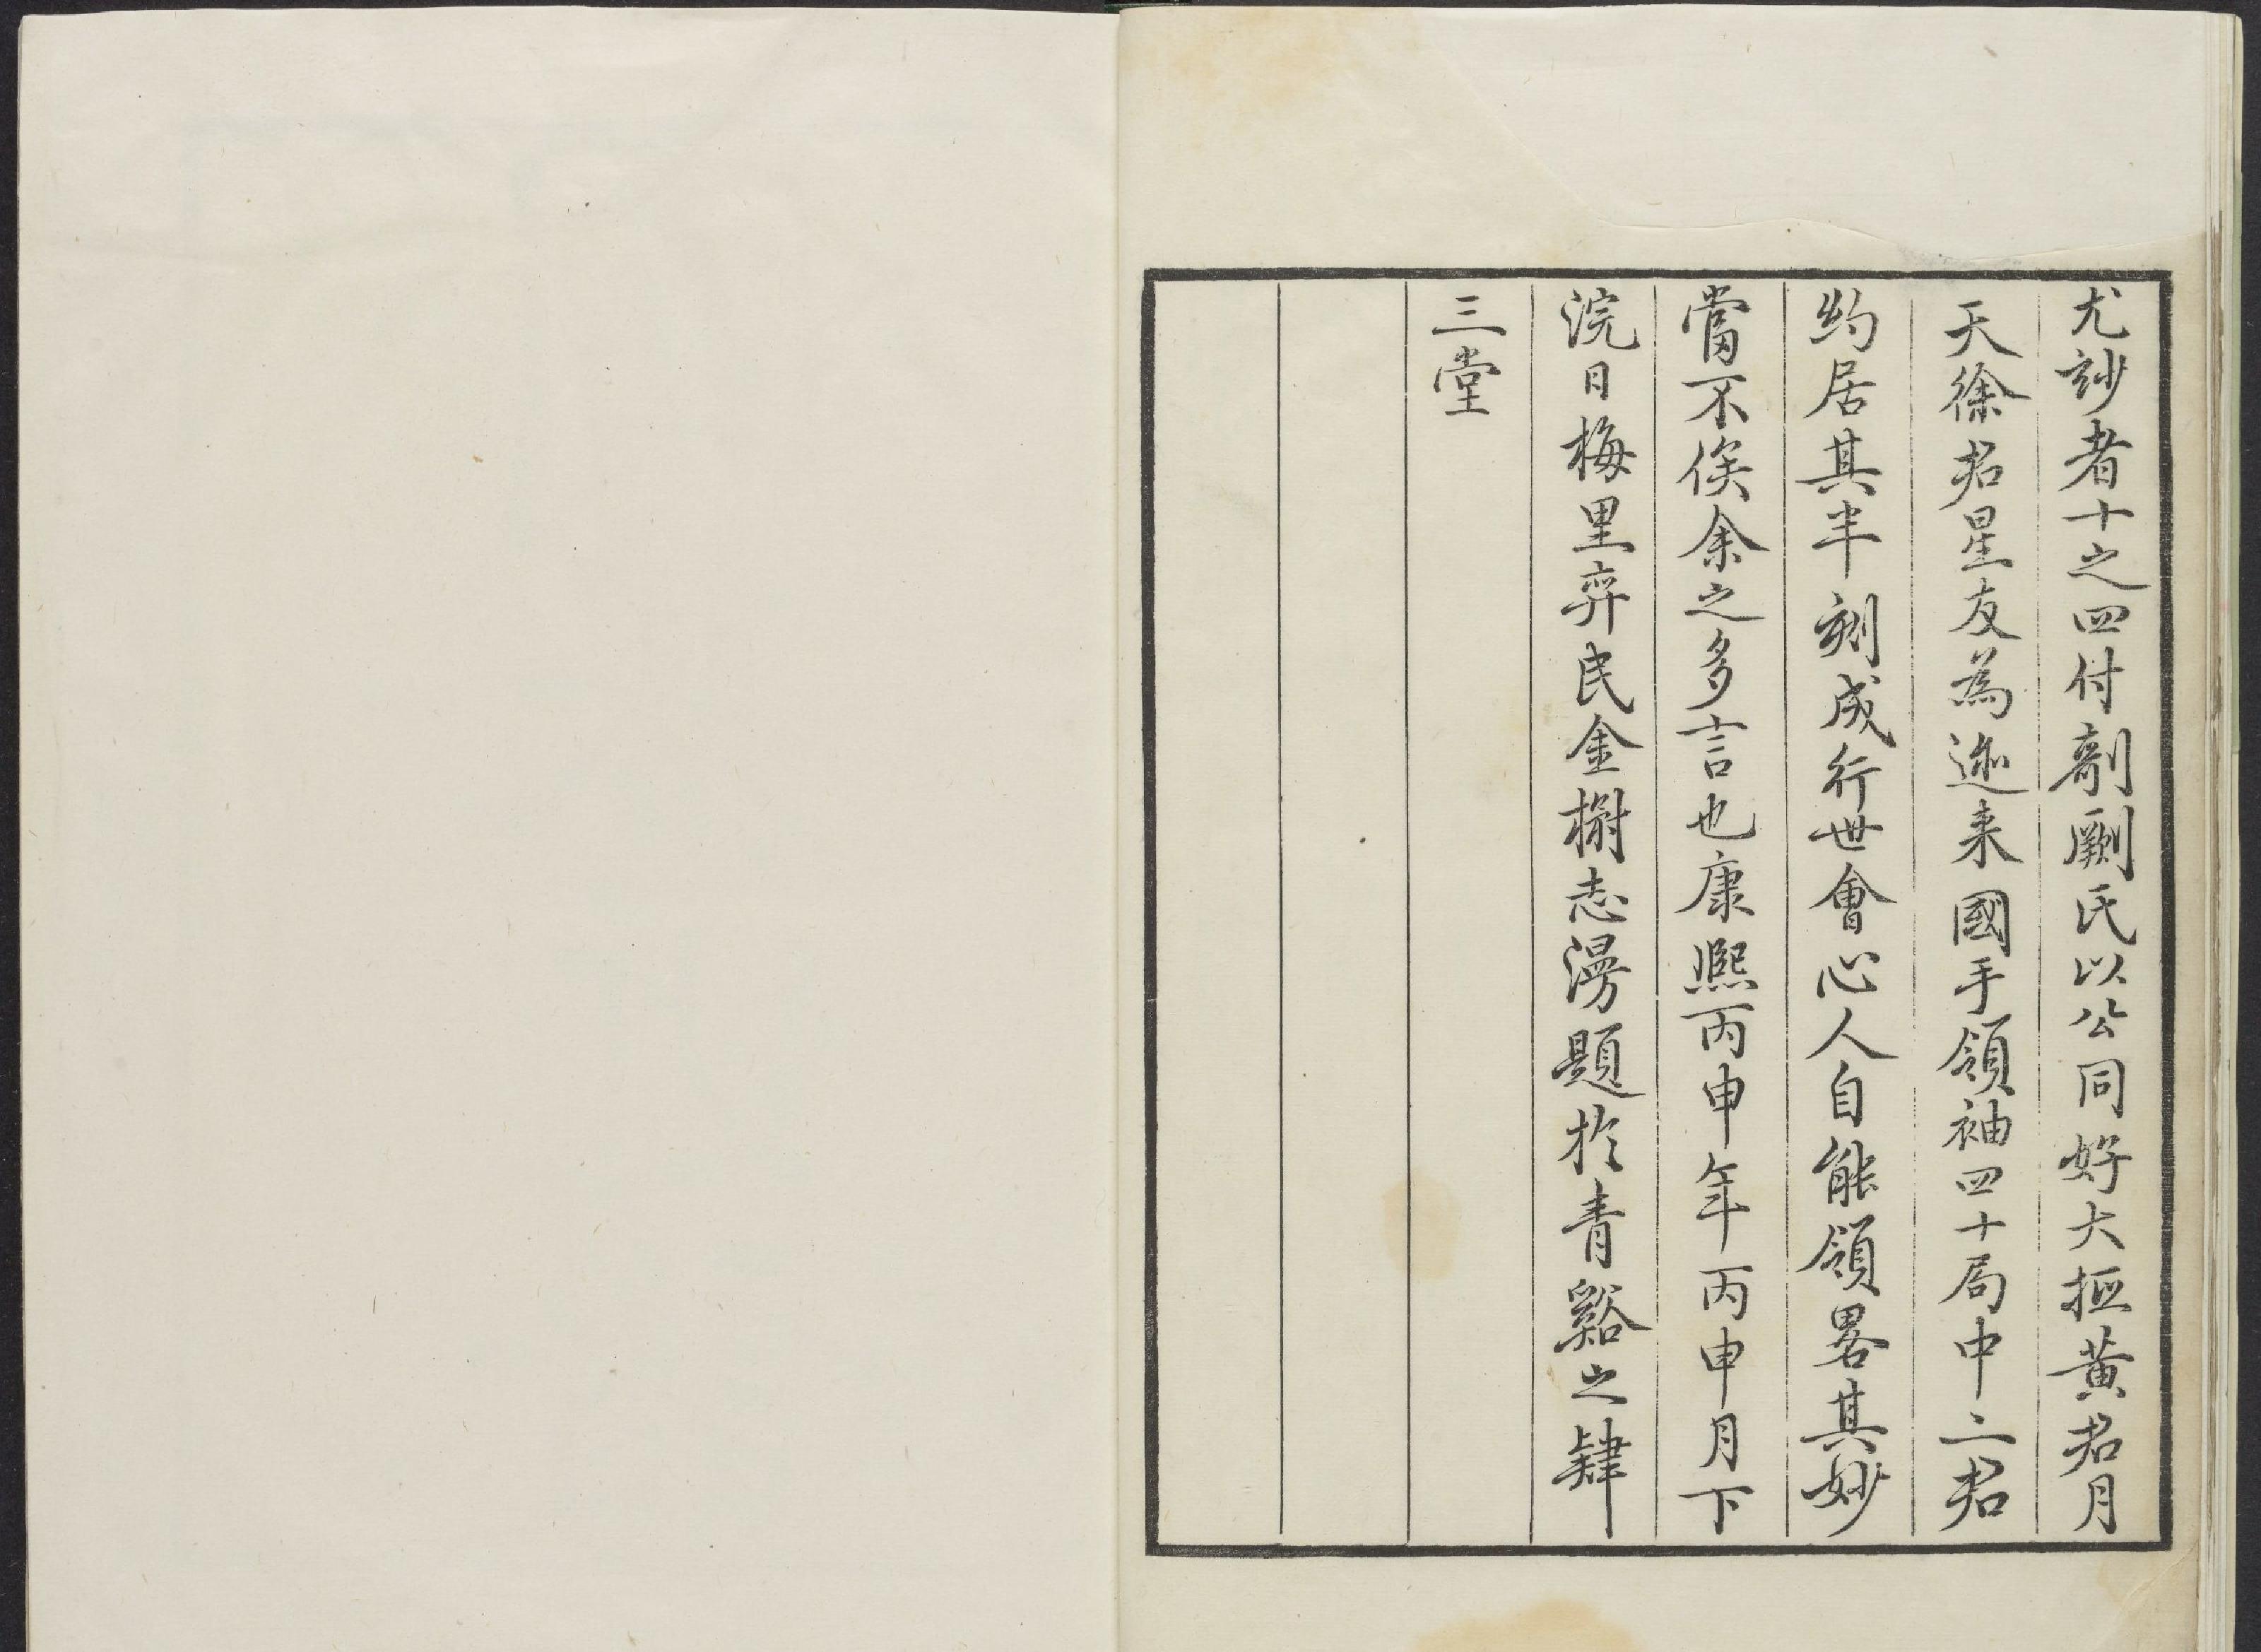 尤玅者十之四付剞劂氏以公同好大抵黄君月
天徐君星友為迩来國手領袖四十局中二君
約居其半刻成行世會心人自能領畧其妙
當不俟余之多言也康熙丙申年丙申月下
浣日梅里弈民金楙志漫題於青谿之肄
三堂